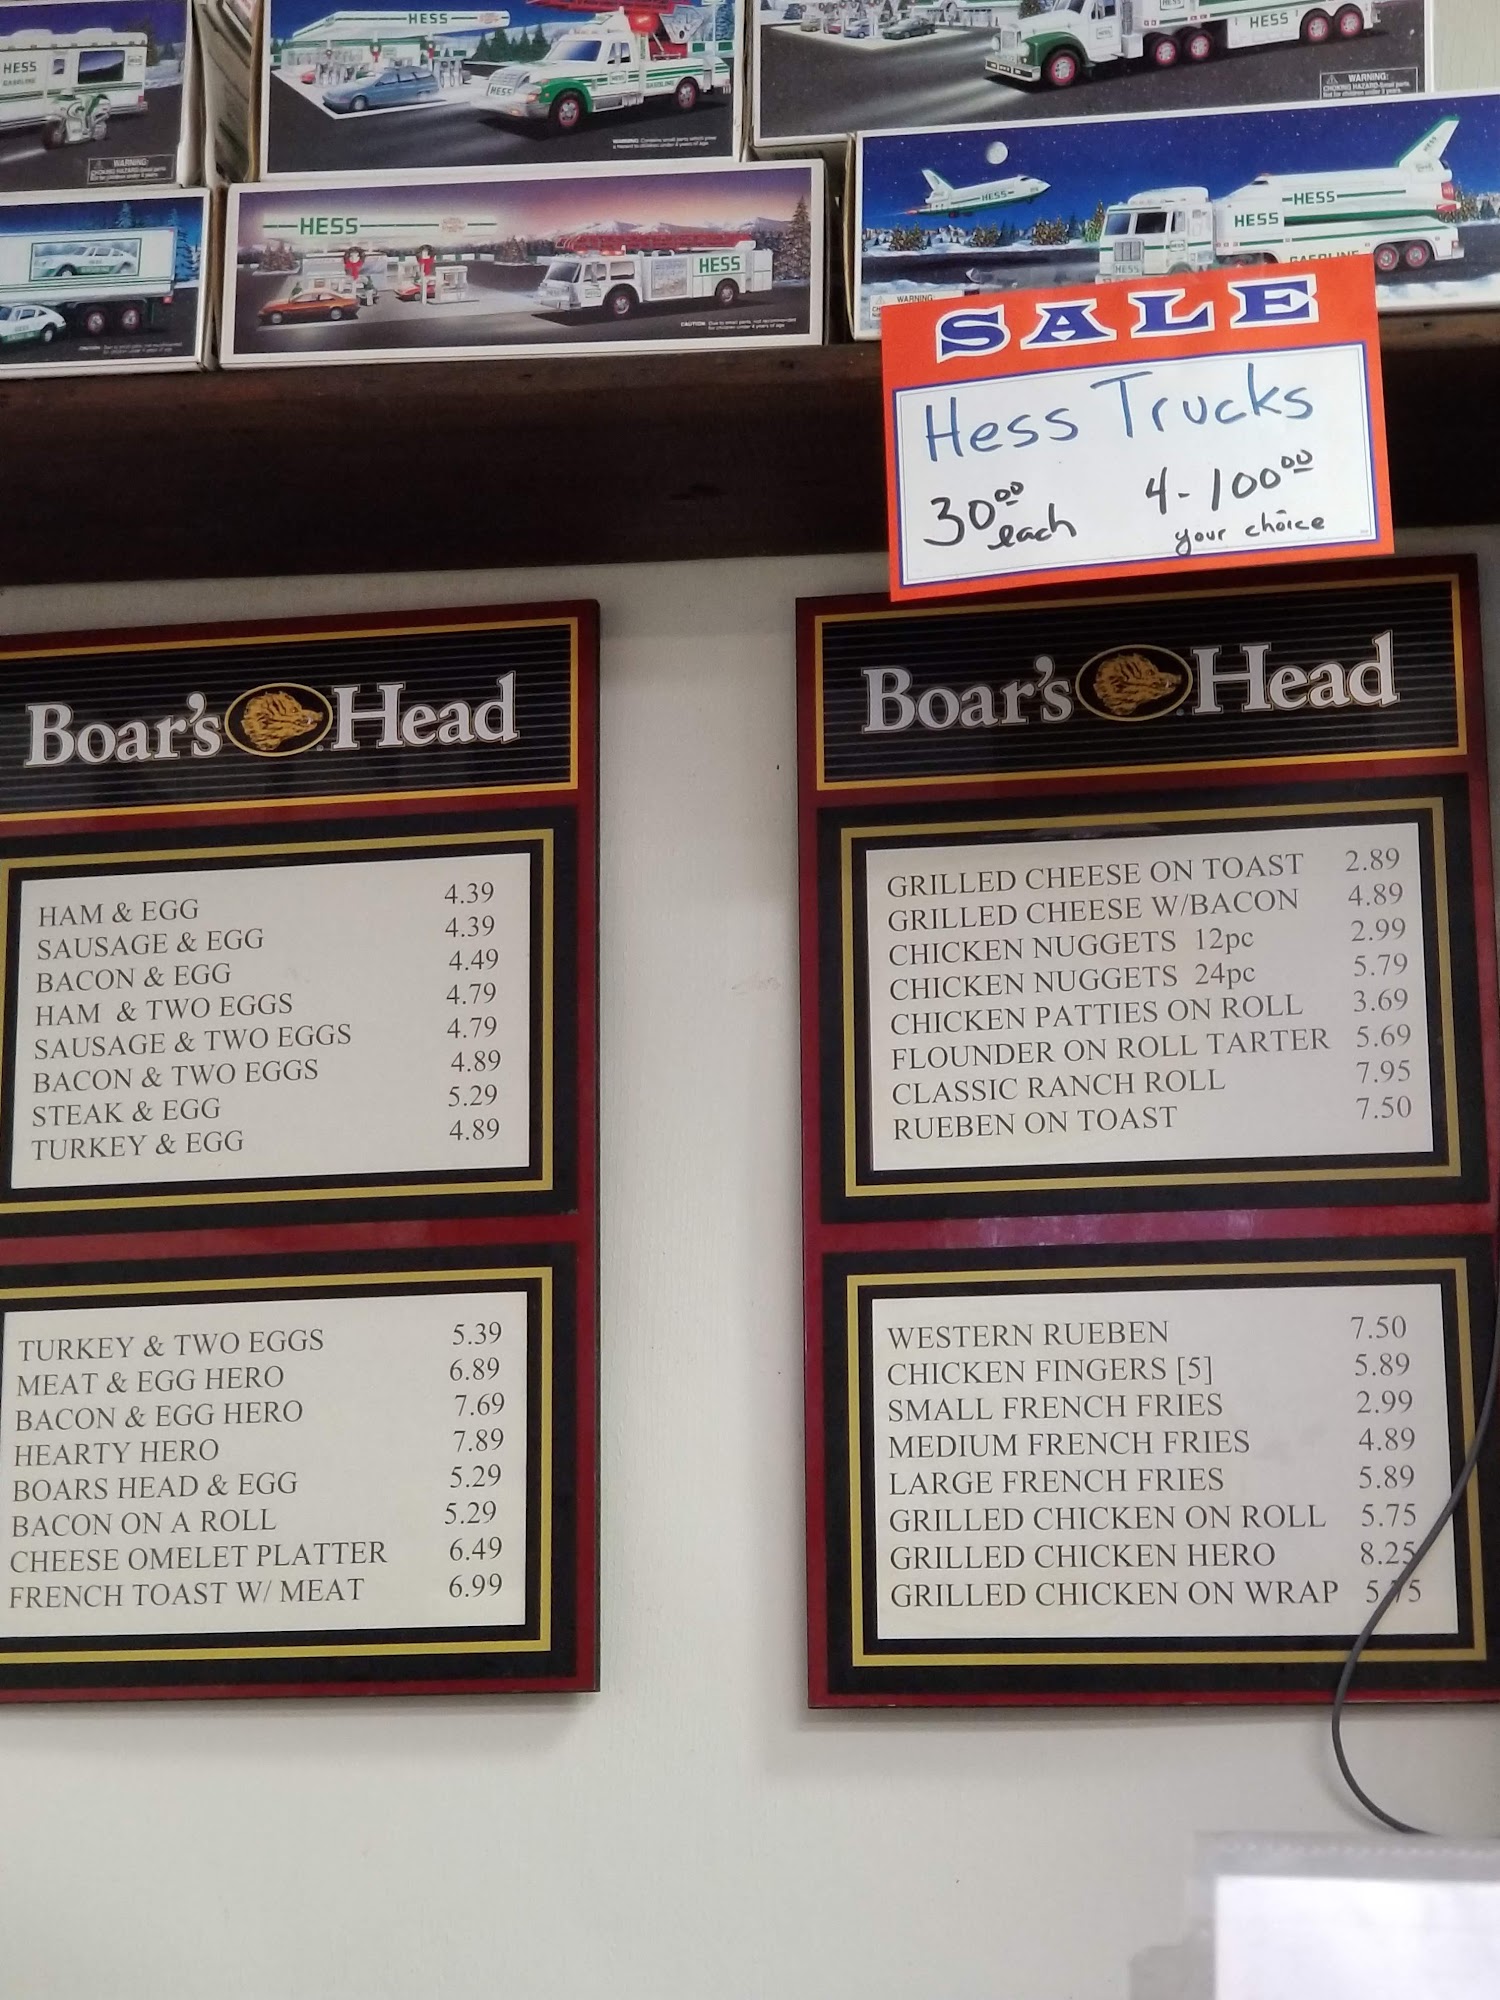 HESS
GASOLINE
WARNING:
HESS
HESS
HESS
WARNING:
CHOKING HAZARD-Small parts.
HESS
HESS
HESS
HESS
HESS
HESS
HESS
GASOLINE
WARNING:
SALE
Hess Trucks
30.00 each
4-100.00
your choice
Boar's Head
HAM & EGG 4.39
SAUSAGE & EGG 4.39
BACON & EGG 4.49
HAM & TWO EGGS 4.79
SAUSAGE & TWO EGGS 4.79
BACON & TWO EGGS 4.89
STEAK & EGG 5.29
TURKEY & EGG 4.89
TURKEY & TWO EGGS 5.39
MEAT & EGG HERO 6.89
BACON & EGG HERO 7.69
HEARTY HERO 7.89
BOARS HEAD & EGG 5.29
BACON ON A ROLL 5.29
CHEESE OMELET PLATTER 6.49
FRENCH TOAST W/ MEAT 6.99
Boar's Head
GRILLED CHEESE ON TOAST 2.89
GRILLED CHEESE W/BACON 4.89
CHICKEN NUGGETS 12pc 2.99
CHICKEN NUGGETS 24pc 5.79
CHICKEN PATTIES ON ROLL 3.69
FLOUNDER ON ROLL TARTER 5.69
CLASSIC RANCH ROLL 7.95
RUEBEN ON TOAST 7.50
WESTERN RUEBEN 7.50
CHICKEN FINGERS [5] 5.89
SMALL FRENCH FRIES 2.99
MEDIUM FRENCH FRIES 4.89
LARGE FRENCH FRIES 5.89
GRILLED CHICKEN ON ROLL 5.75
GRILLED CHICKEN HERO 8.25
GRILLED CHICKEN ON WRAP 5.75